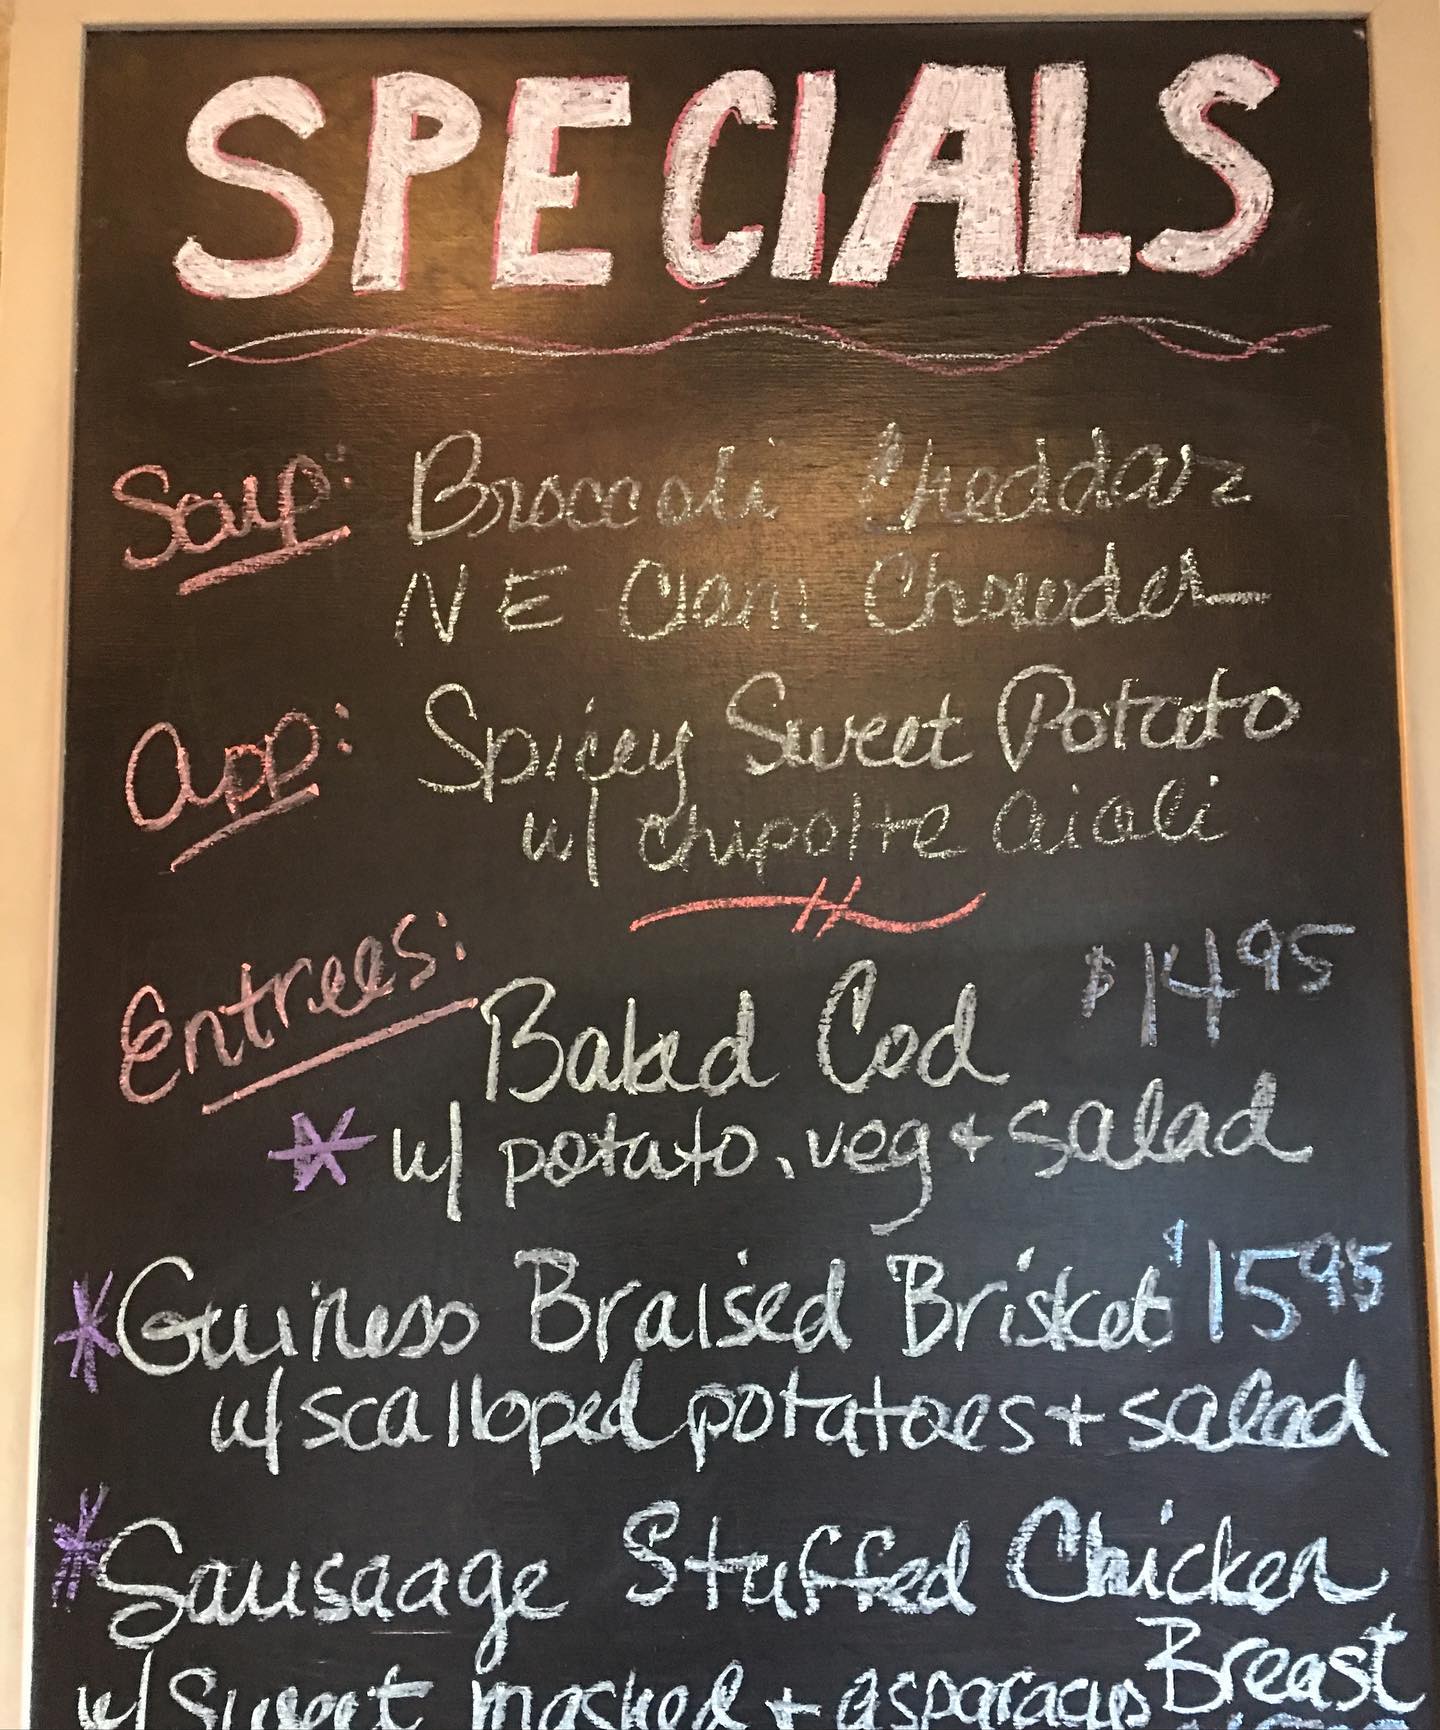 SPECIALS
Soup: Broccoli Cheddar
NE Clam Chowder
App: Spicey Sweet Potato
w/ chipolte aioli
Entrees: Baked Cod $14.95
* w/ potato, veg + salad
* Guiness Braised Brisket $15.95
w/ scalloped potatoes + salad
* Sausaage Stuffed Chicken
Breast
w/ Sweet mashed + asparagus